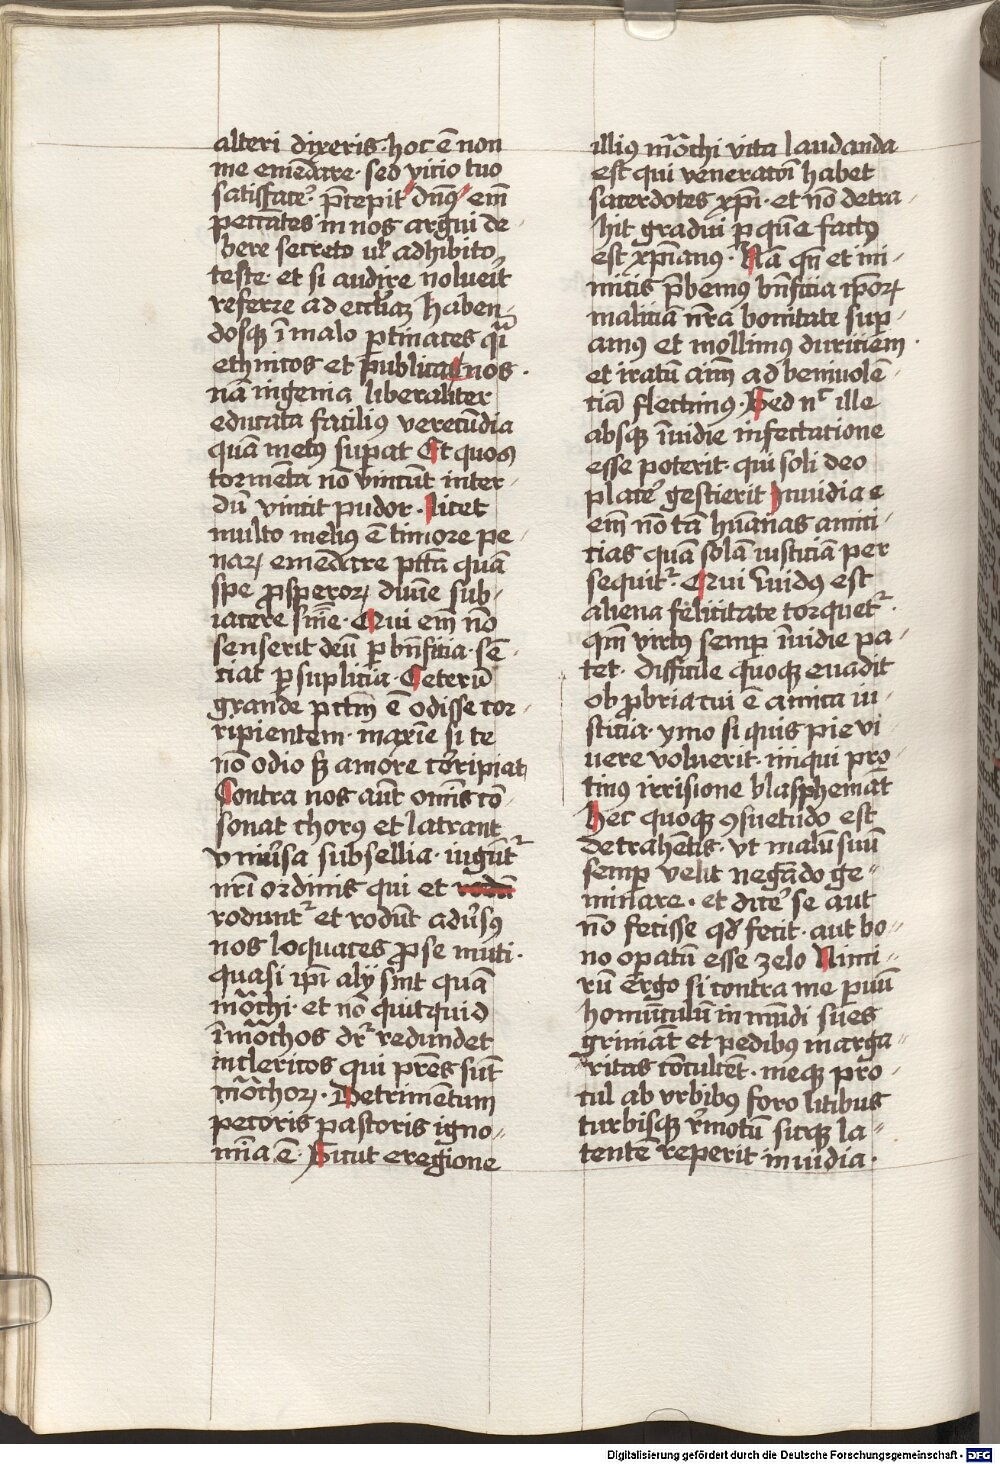 alteri dixeris · hoc ē non
me emēdare · sed vitio tuo
satisface᷒ · p̄cepit dn̄s em̄
peccātes in nos argui de
bere secreto ul᷒ adhibito
teste · et si audire noluerīt
referre ad eccl̄iaꝫ haben-
dosqꝫ ī malo ꝑtinaces qͣi
ethnicos et publicanos ·
nā ingenia liberaliter
educata facilius verecūdia
quā metus suꝑat Et quos
tormēta nō vincūt inter-
dū vincit pudor · licet
multo melius ē timore pe-
naꝝ emēdare pctā quā
spe ꝓsperoꝝ diuīe sub-
iacere sn̄īe · Qui em̄ nō
senserit deū ꝑ bn̄ficia · sē-
ciat ꝑ suplicia · Ceterū
grande pctm̄ ē odisse cor-
ripientem · maxīe si te
nō odio sꝫ amore cōripiat
Contra nos aūt om̄is cō-
sonat chorus et latrant
vniūsa subsellia · iūgūt᷑
nr̄i ordinis qui et
rodunt᷑ et rodūt adūsus
nos loquaces ꝓ se muti ·
quasi ip̄i alij sint quā
mōchi · et nō quitquid
ī mōchos dr᷑ redundet
in clericos qui pr̄es sūt
mōchoꝝ · Detrimētum
pecoris pastoris igno-
mīa ē · Sicut e regione
illius mōchi vita laudanda
est qui veneratōi habet
sacerdotes xp̄i · et nō detra-
hit gradui ꝑ quē factus
est xp̄ianus · Nā qn̄ et ini-
micis p̄bemus bn̄ficia ip̄oꝝ
maliciā nr̄a bonitate suꝑ-
amus et mollimus duriciem ·
et iratū aīm ad beniuolē-
ciā flectimus · Sed nͨ ille
absqꝫ īuidie infectatione
esse poterit · qui soli deo
place᷒ gestierit Inuidia e
em̄ nō tā hūanas amici-
cias quā solā iusticiā per
sequit᷑ · Qui īuidus est
aliena felicitate torquet᷑ ·
qm̄ virtus semꝑ īuidie pa-
tet · difficile quoqꝫ euadit
obꝓbria cui ē amica iu-
sticia · ymo si quis pie vi
uere voluerit · iniqui pro
tinus irrisione blasphemāt
Hec quoqꝫ ꝯsuetudo est
detrahētis · vt malū suū
semꝑ velit negādo ge-
minare · et dice᷒ se aut
nō fecisse qd̄ fecit · aut bo-
no opatū esse zelo Nimi-
rū ergo si contra me ꝑuū
homūculū inmūdi sues
grimāt et pedibus marga-
ritas cōculcēt · meqꝫ pro-
cul ab vrbibus foro litibus
turbisqꝫ r̄motū sicqꝫ la-
tentē reperit inuidia ·
Digitalisierung gefördert durch die Deutsche Forschungsgemeinschaft - DFG